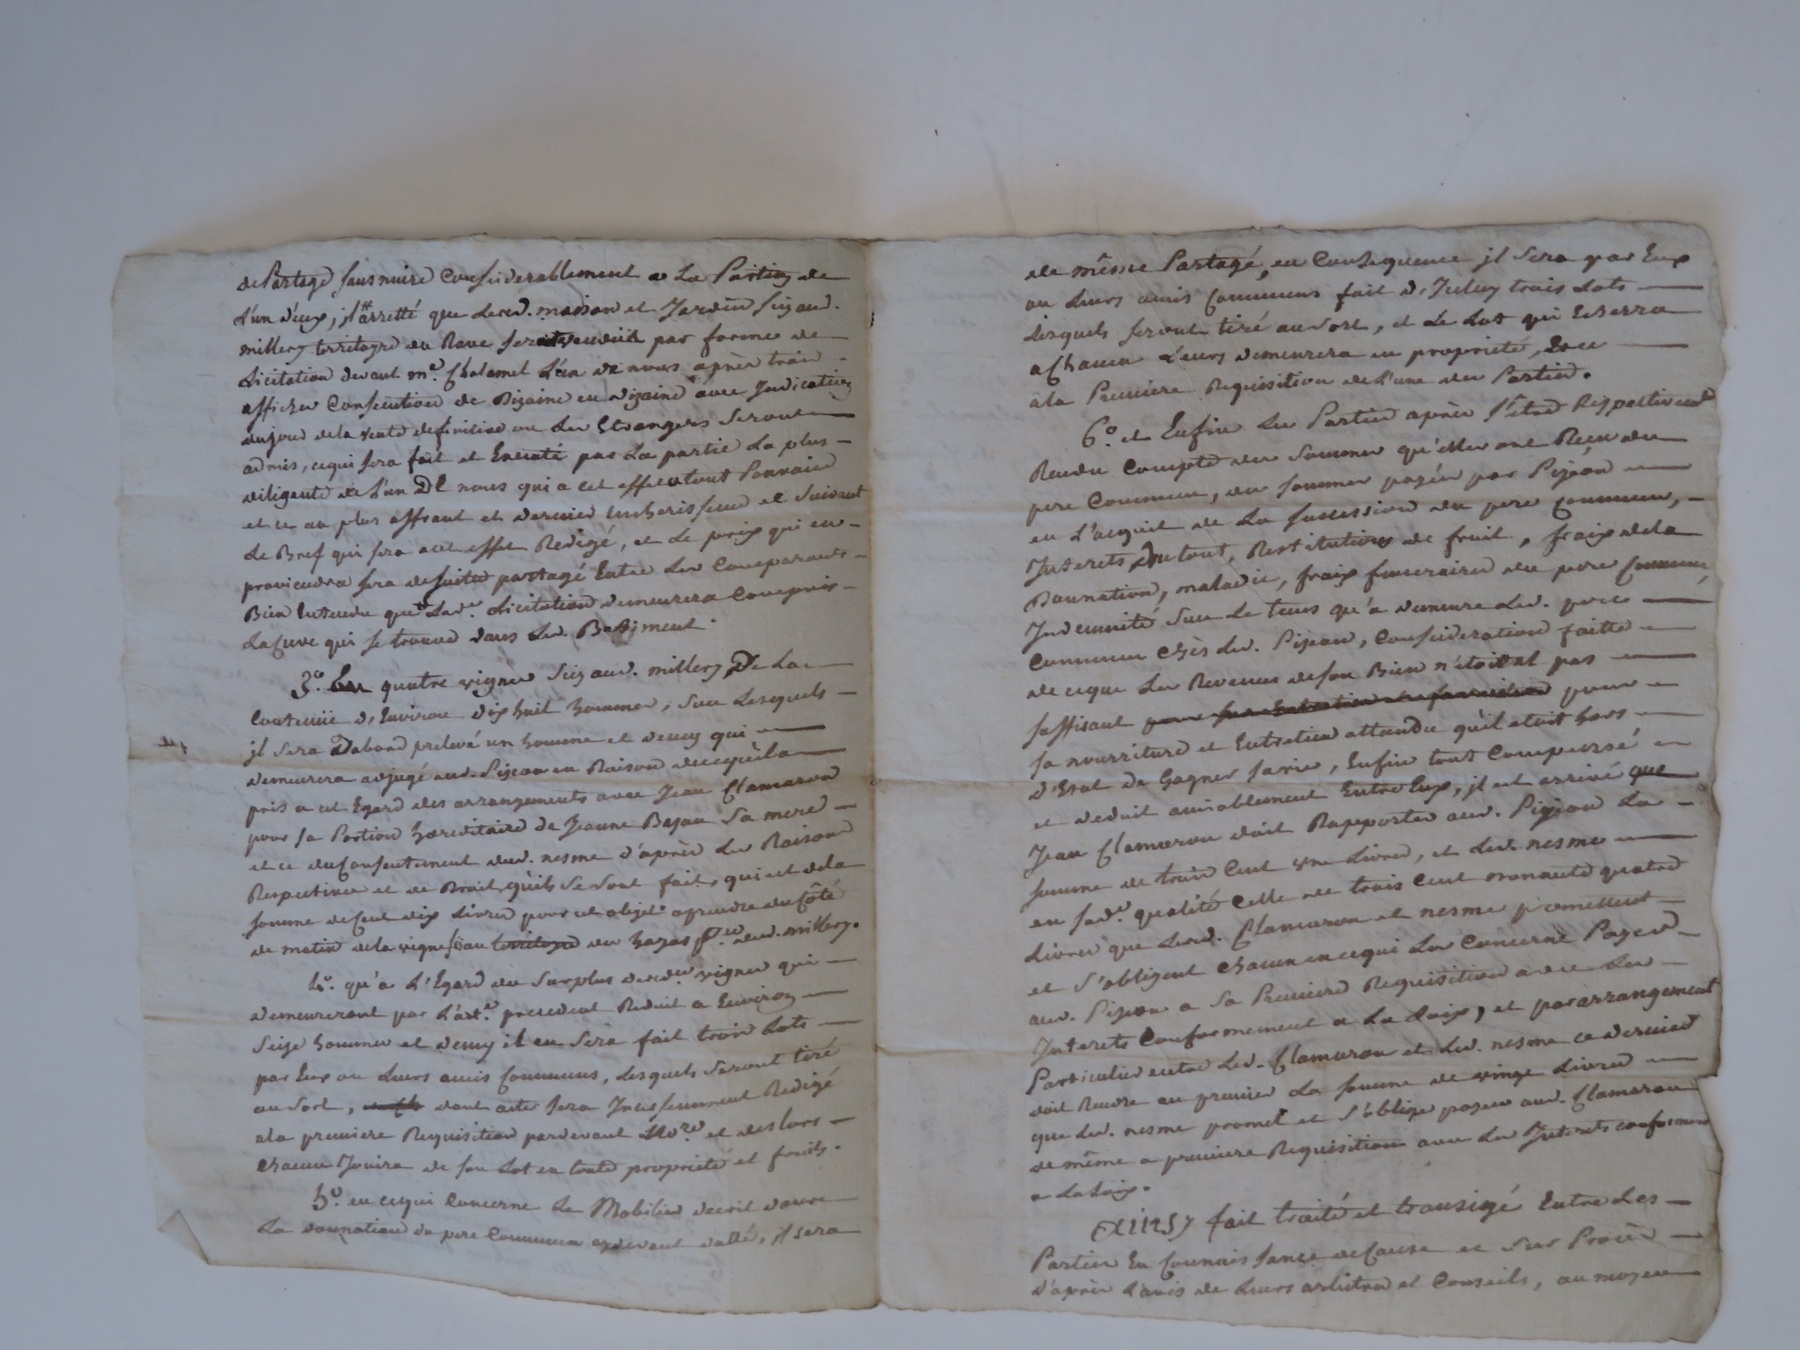 de Partage sans nuire considerablement a La Portion de
L'un d'eux, il est arretté que Lesd. maison et Jardin sis aud.
millery territoyre du Rave seront vendus par forme de
Licitation devant me. Chalamel L'un de nous après trois
affiches Consecutives de Dizaine en Dizaine avec Indication
du jour de la vente definitive ou Les Etrangers seront
admis, ce qui sera fait et Executé par La partie La plus
diligente de L'un De nous qui a cet effet a tout Pouvoir
et ce au plus offrant et dernier Encherisseur et suivant
Le Bref qui sera a cet effet Redigé, et Le prix qui en
proviendra sera de suitte partagé Entre Les Comparants
Bien Entendu que Lade. Licitation demeurera Compris
La Cuve qui se trouve dans Led. Batiment.
3o. En quatre vignes sizes aud. millery De La
Contenüe d'Environ dix huit hommes, sur Lesquels
jl sera Dabord prélevé un homme et demy qui
demeurera adjugé aud. Pijeon en Raison de ce qu'il a
pris a cet Egard des arrangements avec Jean Clamaron
pour sa Portion hereditaire de Jeanne Bejan sa mere
et ce du Consentement dud. nesme d'après Les Raisons
Respectives et de Droit qu'ils se sont fait, qui est de la
somme de Cent dix Livres pour cet objet a prendre du Côté
de matin de la vigne size au territoyre des hayes dud. millery.
4o. qu'a L'Egard du surplus desdes vignes qui
demeureront par L'arte. precedent Reduit a Environ
Seize hommes et demy il en sera fait trois Lots
par Eux ou Leurs amis Communs, Lesquels seront tiré
au sort, dont acte sera Incessamment Redigé
a la premiere Requisition pardevant Nore et des lors
chacun Jouira de son Lot en toute propriété et fruits.
5o. en ce qui Concerne Le Mobilier decrit dans
La donnation du pere Commun cydevant datté, il sera
de même Partagé, en Consequence jl sera par Eux
ou Leurs amis Communs fait d'Iceluy trois Lots
Lesquels seront tiré au sort, et Le Lot qui Echerra
a Chacun d'eux demeurera en propriété, Et ce
a la Premiere Requisition de L'une des Parties.
6o. et Enfin Les Parties après s'être Respectivement
Rendu Compte des Sommes qu'elles ont Recu du
pere Commun, des sommes payées par Pijeon
en L'acquit de La succession du pere Commun,
Interets Du tout, Restitution de fruit, fraix de la
Donnation, maladie, fraix funeraires du pere Commun,
Indemnité sur Le tems qu'a demeuré Led. pere
Commun chès Led. Pijeon, Consideration faitte
de ce que Les Revenus de son Bien n'etoient pas
suffisant pour
sa nourriture et Entretien attendu qu'il etoit hors
d'Etat de Gagner sa vie, Enfin tout Compensé
et deduit amiablement Entre Eux, jl est arrivé que
Jean Clamaron doit Rapporter aud. Pigeon La
somme de trois Cent une Livres, et Led. nesme
en sade. qualité celle de trois cent nonante quatre
Livres que Lesd. Clamaron et nesme promettent
et s'obligent chacun en ce qui Les Concerne Payer
aud. Pijeon a sa Premiere Requisition avec Les
Interets Conformement a La Loix, et par arrangement
Particulier entre Led. Clamaron et Led. nesme ce dernier
doit Rendre au premier La somme de vingt Livres
que Led. nesme promet et s'oblige payer aud. Clamaron
de même a premiere Requisition avec Les Interets conformement
a La Loix.
Ainsy fait traité et transigé Entre Les
Parties En Connaissance de Cause et sur Procès
d'après L'avis de Leurs arbitres et Conseils, au moyen